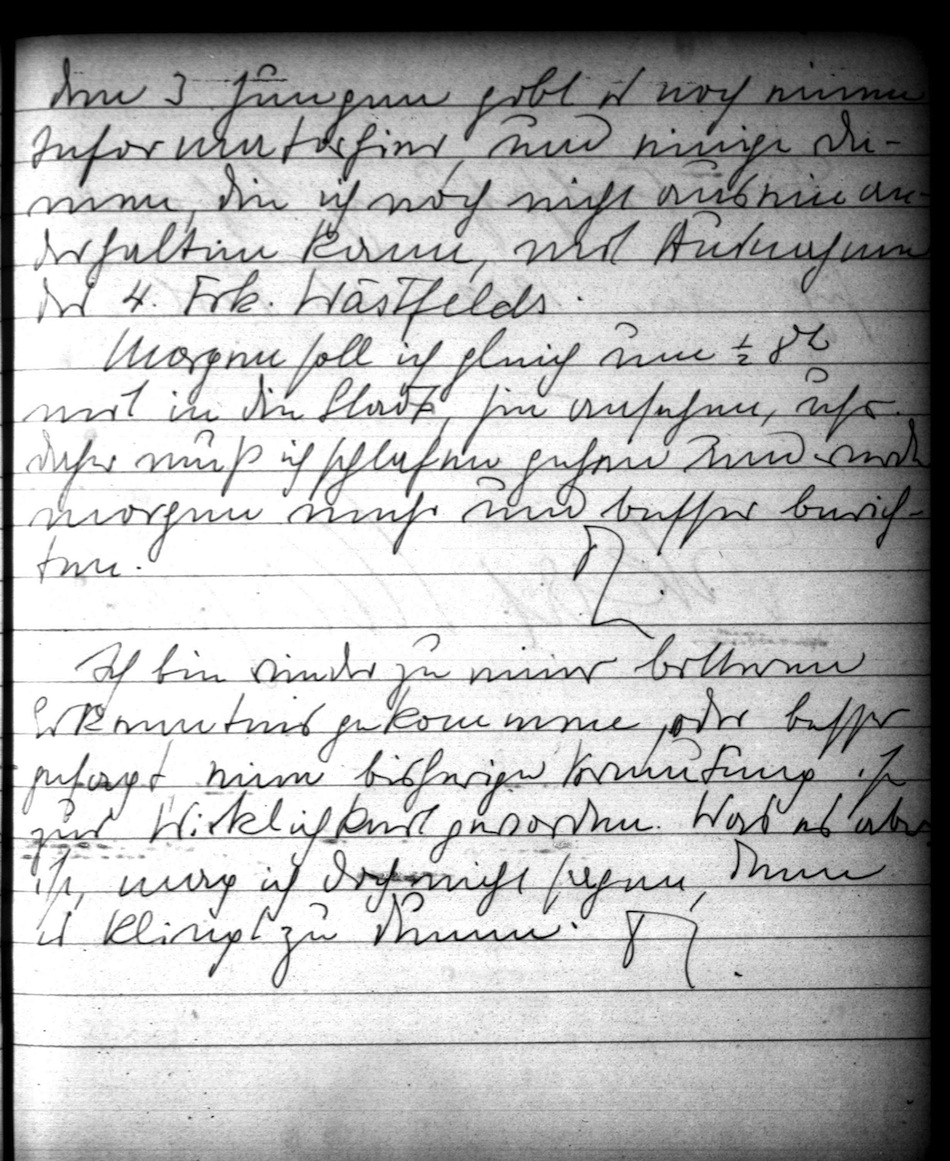 den 3 Jungen gibt es noch einen
Informator hier, und einige Da-
men, die ich noch nicht auseinan-
derhalten kann, mit Ausnahme
der 4. Frk. Wästfelds.
Morgen soll ich gleich um ½ 8
mit in die Stadt, sie ansehen, usw.
daher muß ich schlafen gehen und werde
morgen mehr und besser berich-
ten.
Ich bin wieder zu einer bitteren
Erkenntnis gekommen, oder besser
gesagt meine bisherige Vermutung ist
zur Wirklichkeit geworden. Was es aber
ist, mag ich doch nicht sagen, denn
es klingt zu dumm.